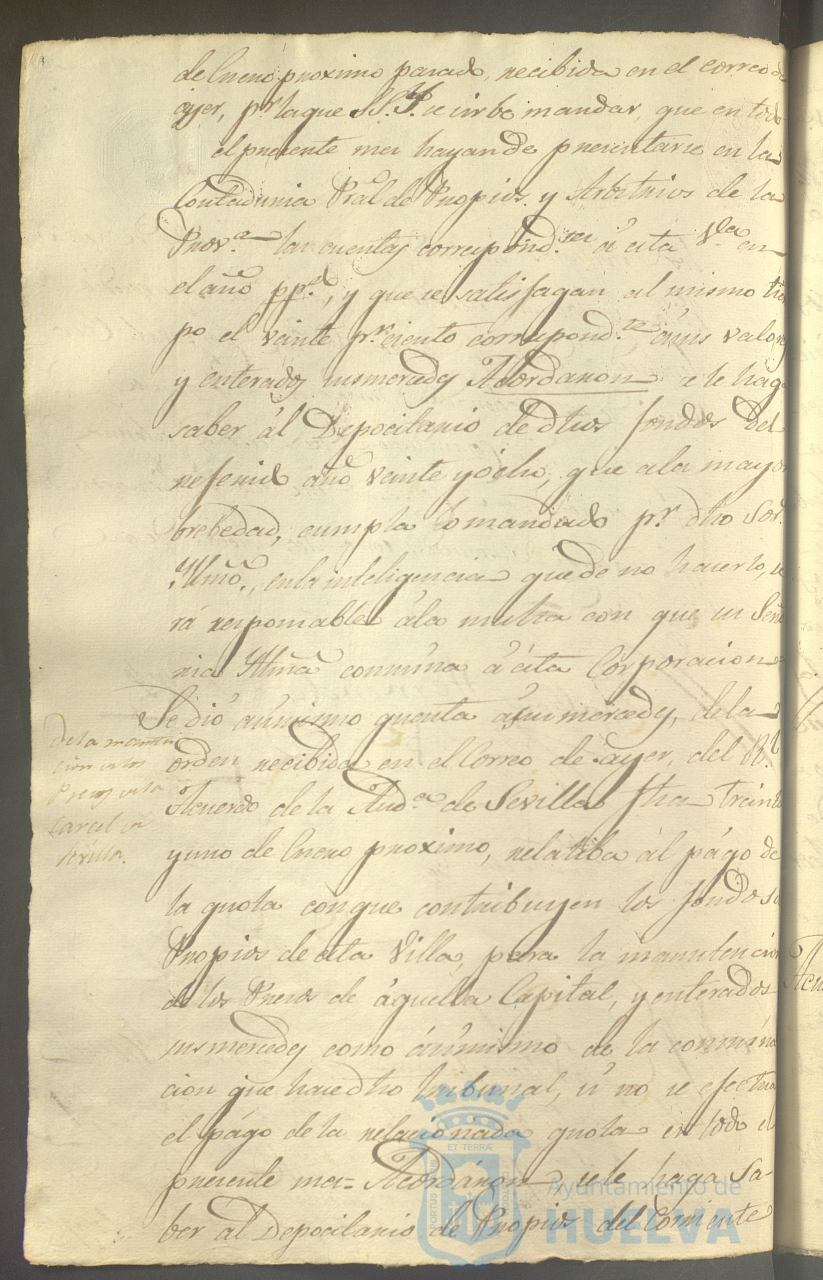 de Enero proximo pasado, recibida en el correo de
ayer, pr. la que S.S.Y. se sirbe mandar, que en todo
el presente mes hayan de presentarse en la
Contaduria Pral de Propios y Arbitrios de la
Prova. las cuentas correspondtes. á esta Va. en
el año pp.do, y que se satisfagan al mismo tiem
po el veinte pr. ciento correspondte. á sus valores
y enterados sus mercedes Acordaron se le haga
saber ál Depocitario de dhos fondos del
referido año veinte y ócho, que a la mayor
brebedad, cumpla lo mandado pr. dho Sor.
Yllmô., en la inteligencia que de no hacerlo, se
rá responsable á la multa con que su Seño
ria Yllmâ conmina á ésta Corporacion
Se dió asimismo quenta á sus mercedes, de la
orden recibida en el Correo de ayer, del Rl.
Acuerdo de la Auda. de Sevilla fha treinta
y uno de Enero proximo, relatiba ál págo de
la quota con que contribuyen los fondos de
Propios de esta Villa, para la manutencion
de los Presos de áquella Capital, y enterados
sus mercedes como ásimismo de la conmina
cion que hace dho tribunal, si no se efectua
el págo de la relacionada quota en todo el
presente mes = Acordáron se le haga sa-
ber al Depocitario de Propios del Corriente
De la manten
cion de los
Presos de la
Carcel de
Sevilla.
Ayuntamiento de
HUELVA